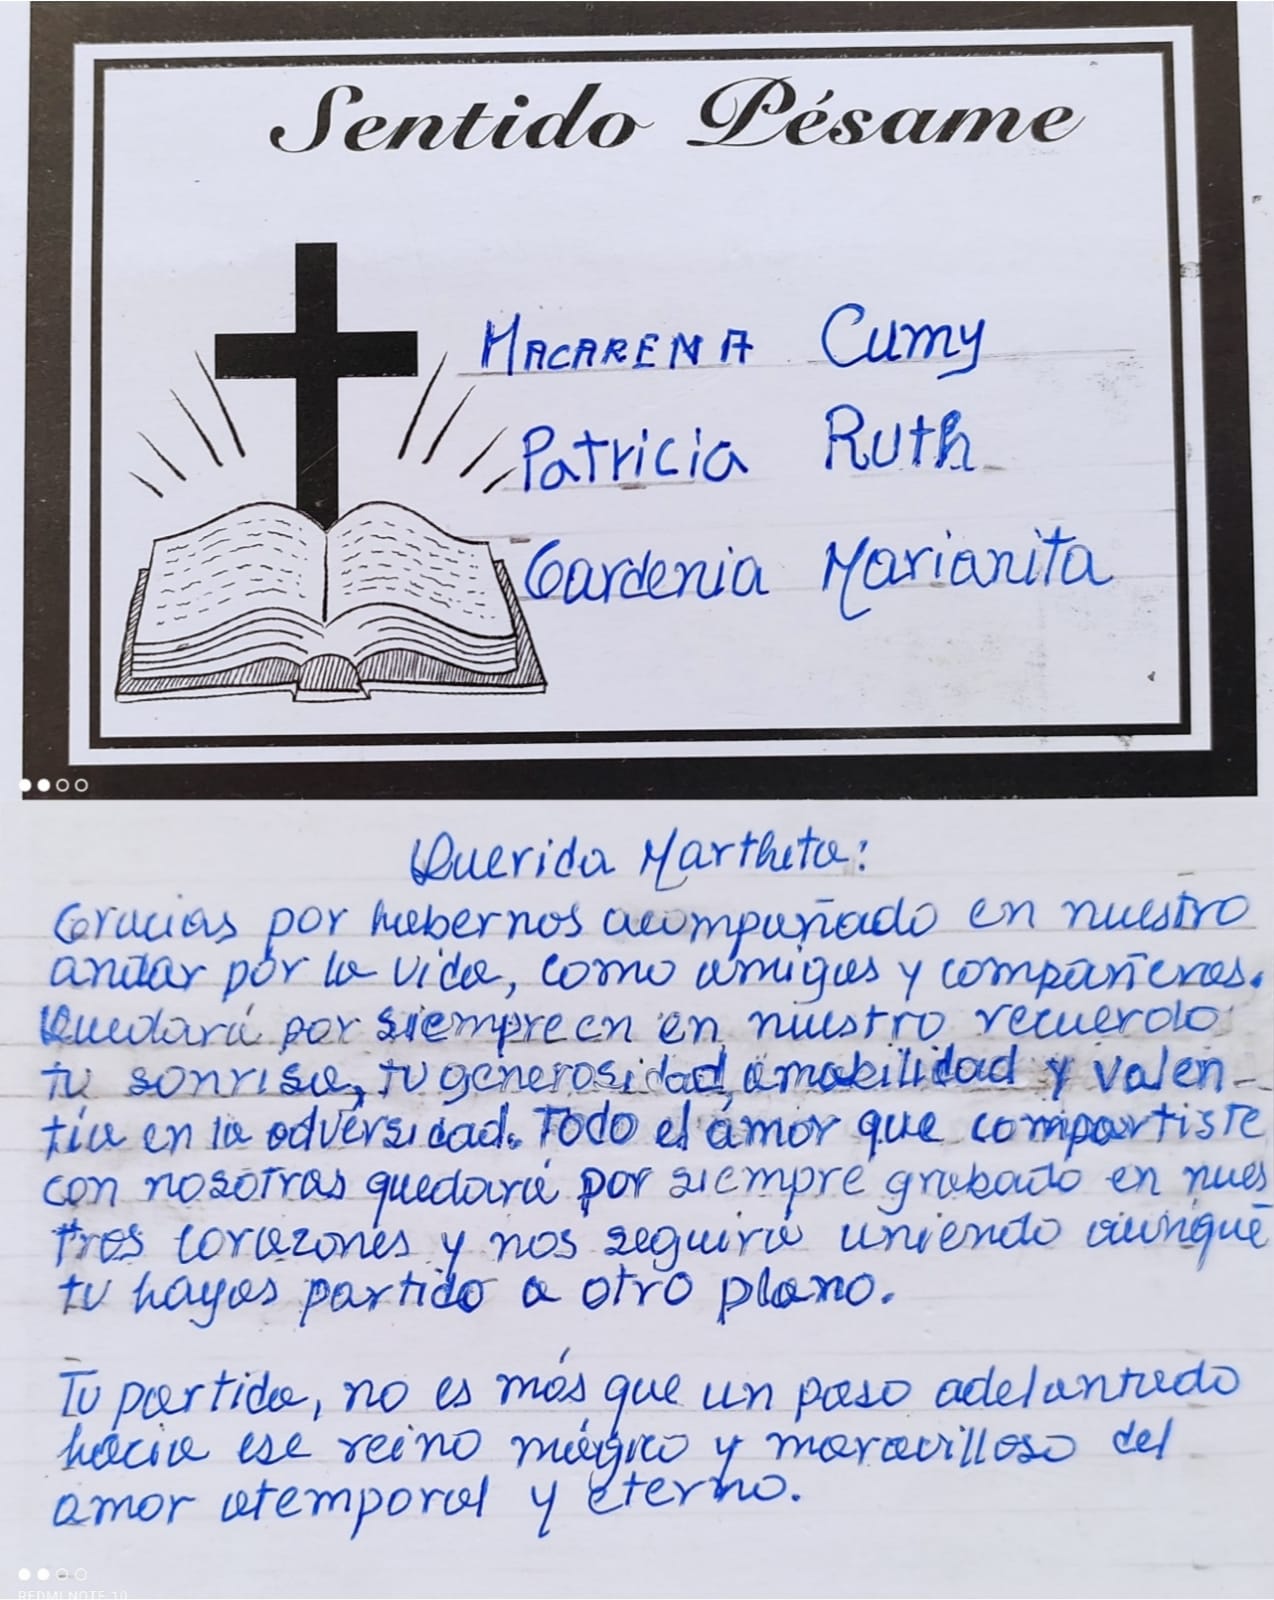 Sentido Pésame
MACARENA Cumy
Patricia Ruth
Gardenia Marianita
Querida Marthita:
Gracias por habernos acompañado en nuestro
andar por la vida, como amigas y compañeras.
Quedará por siempre en en nuestro recuerdo
tu sonrisa, tu generosidad, amabilidad y valen-
tía en la adversidad. Todo el amor que compartiste
con nosotras quedará por siempre grabado en nues
tros corazones y nos seguirá uniendo aunque
tu hayas partido a otro plano.
Tu partida, no es más que un paso adelantado
hacia ese reino mágico y maravilloso del
amor atemporal y eterno.
REDMI NOTE 10